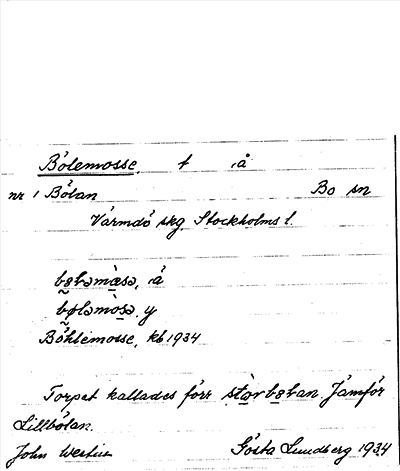 Bölemosse, t , å
nr 1 Bölan Bo sn
Värmdö skg. Stockholms l.
bɵləmòsə, ä
bɵləmòsə, y
Böhlemosse, kb 1934
Torpet kallades förr stòrbɵlan. Jämför
Lillbölan.
John Gösta Lundberg 1934